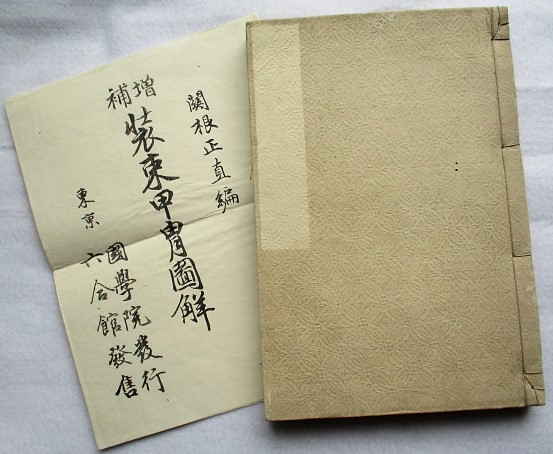 関根正直編
増補
装束甲冑圖解
東京
國學院發行
六合館發售